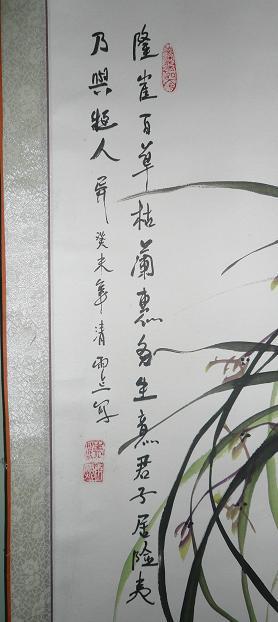 隆崖百草枯蘭蕙多生意君子居險夷
乃與凝人殊癸未年清雨之寫